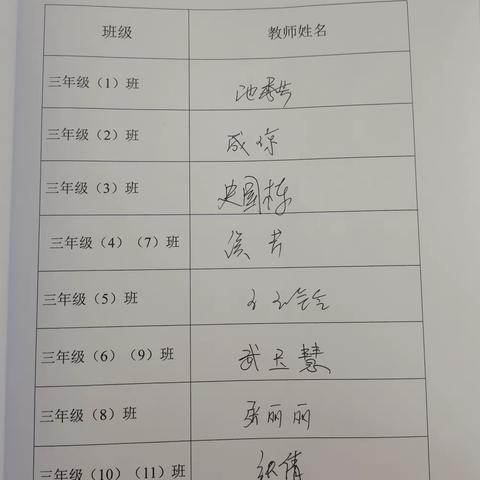 班级 教师姓名
三年级（1）班
三年级（2）班 成琼
三年级（3）班 史国栋
三年级（4）（7）班 侯芳
三年级（5）班
三年级（6）（9）班 武玉慧
三年级（8）班 丽丽
三年级（10）（11）班 倩